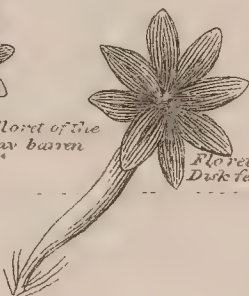 loret of the
ay barren
Floret
Disk fe